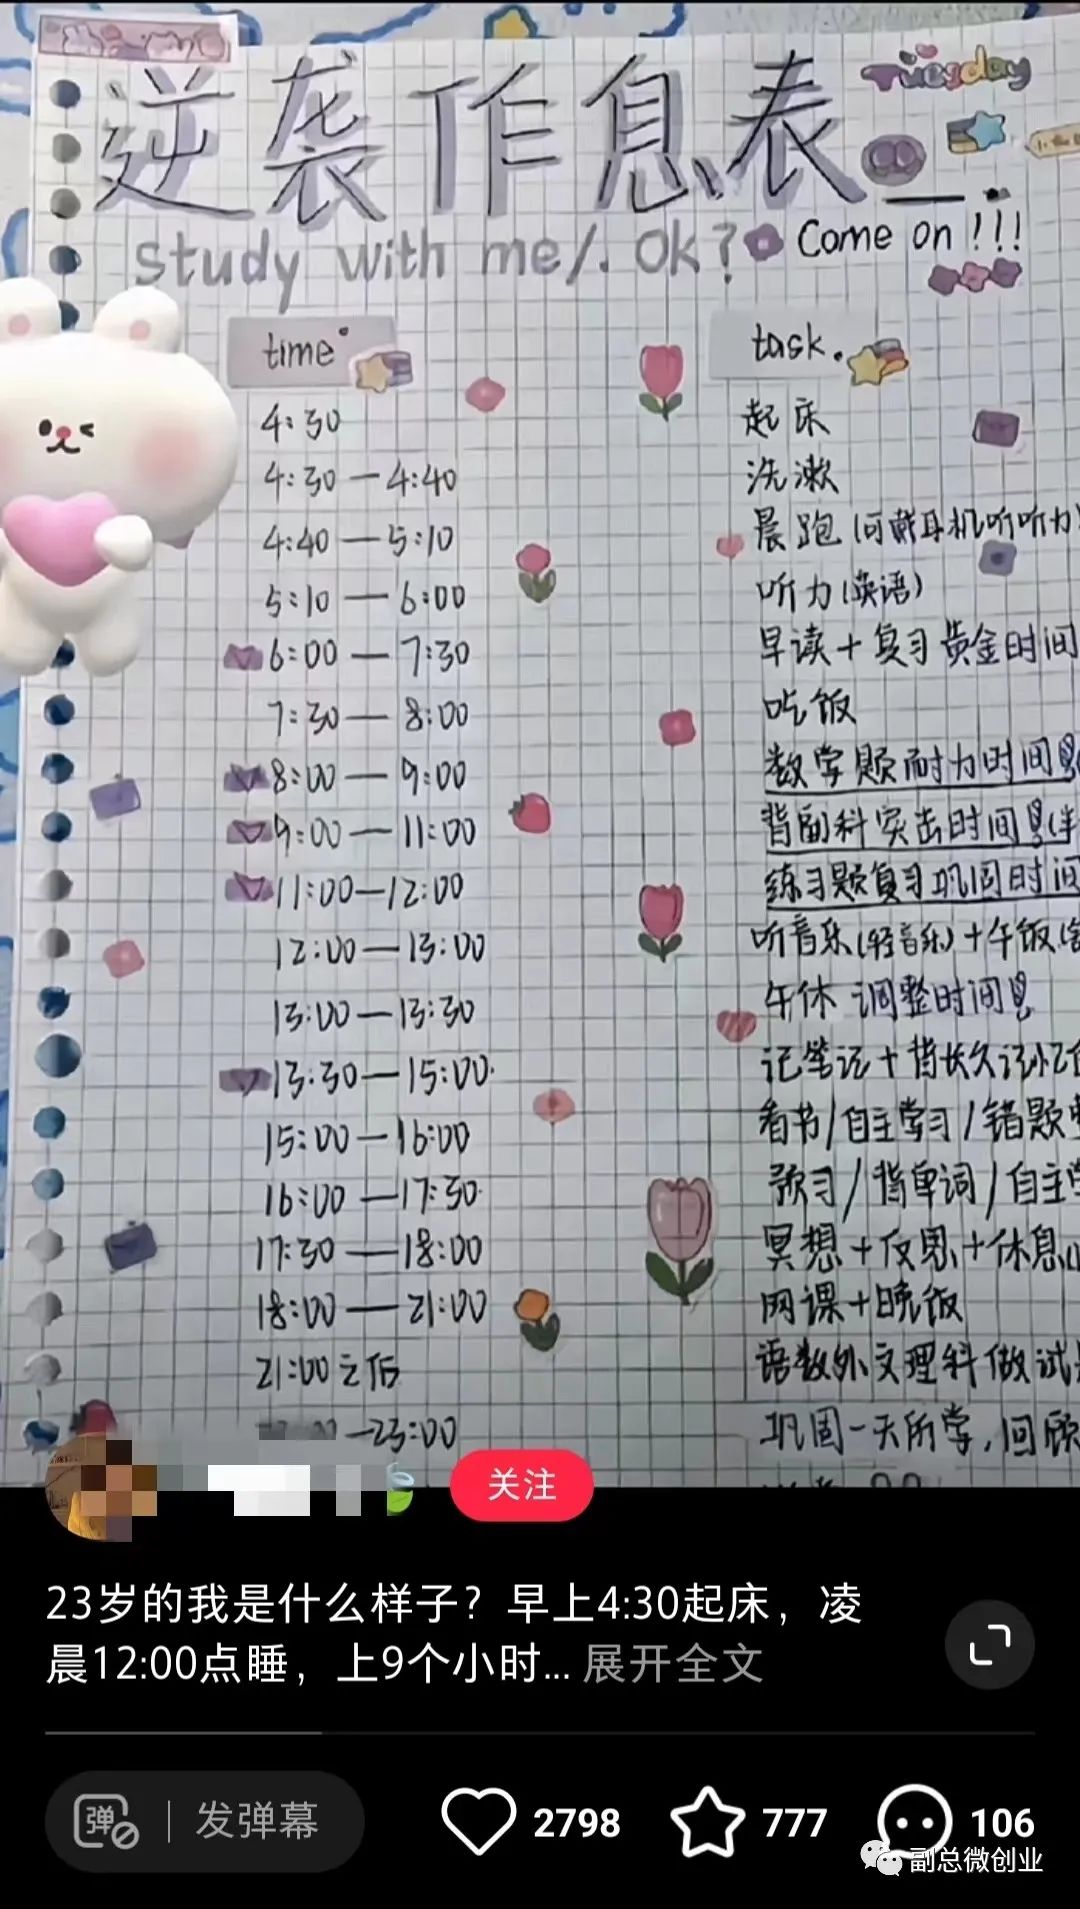 逆袭作息表
Tuesday
study with me/. ok?
Come on!!!
time
task.
4:30 起床
4:30—4:40 洗漱
4:40—5:10 晨跑(可戴耳机听听力)
5:10—6:00 听力(英语)
6:00—7:30 早读+复习 黄金时间
7:30—8:00 吃饭
8:00—9:00 数学题 耐力时间!
9:00—11:00 背副科 突击时间!
11:00—12:00 练习题复习 巩固时间
12:00—13:00 听音乐(轻音乐)+午饭
13:00—13:30 午休 调整时间!
13:30—15:00 记笔记+背长久记忆
15:00—16:00 看书/自主学习/错题
16:00—17:30 预习/背单词/自主
17:30—18:00 冥想+反思+休息
18:00—21:00 网课+晚饭
21:00之后 语数外文理科做试
—23:00 巩固一天所学,回顾
关注
23岁的我是什么样子?早上4:30起床,凌
晨12:00点睡,上9个小时... 展开全文
弹 发弹幕
2798
777
106
副总微创业